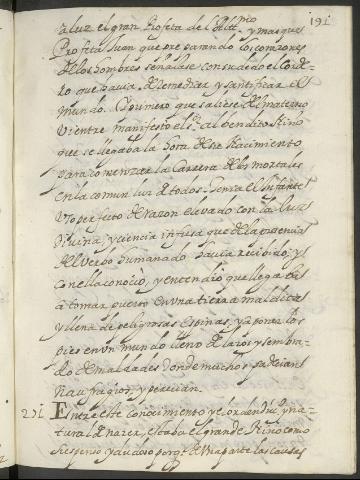 191
a luz el gran Profeta del Altmo y mas que
Profeta Juan que preparando los corazones
de los hombres señalase con su dedo el Corde-
ro que havia de remediar y santificar el
mundo. Y primero que saliese del materno
vientre manifestó el sr. al bendito Niño
que se llegaba la hora de su Nacimiento
para comenzar la Carrera de los mortales
en la comun luz de todos. Tenia el Infante
uso perfecto de razon elevado con la luz
divina, y ciencia infusa que de la presencia
del Verbo humanado havia recibido; y
con ella conoció, y entendio que llegaba
a tomar puerto en una tierra maldita
y llena de peligrosas espinas, y a poner los
pies en un mundo lleno de lazos y sembra-
do de maldades donde muchos padecian
Naufragio y perecian.
271 Entre este conocimiento y el orden divino y na-
tural de nacer, estaba el grande Niño como
suspenso y dudoso porqe. de una parte las causas